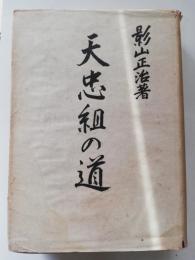 影山正治著
天忠組の道